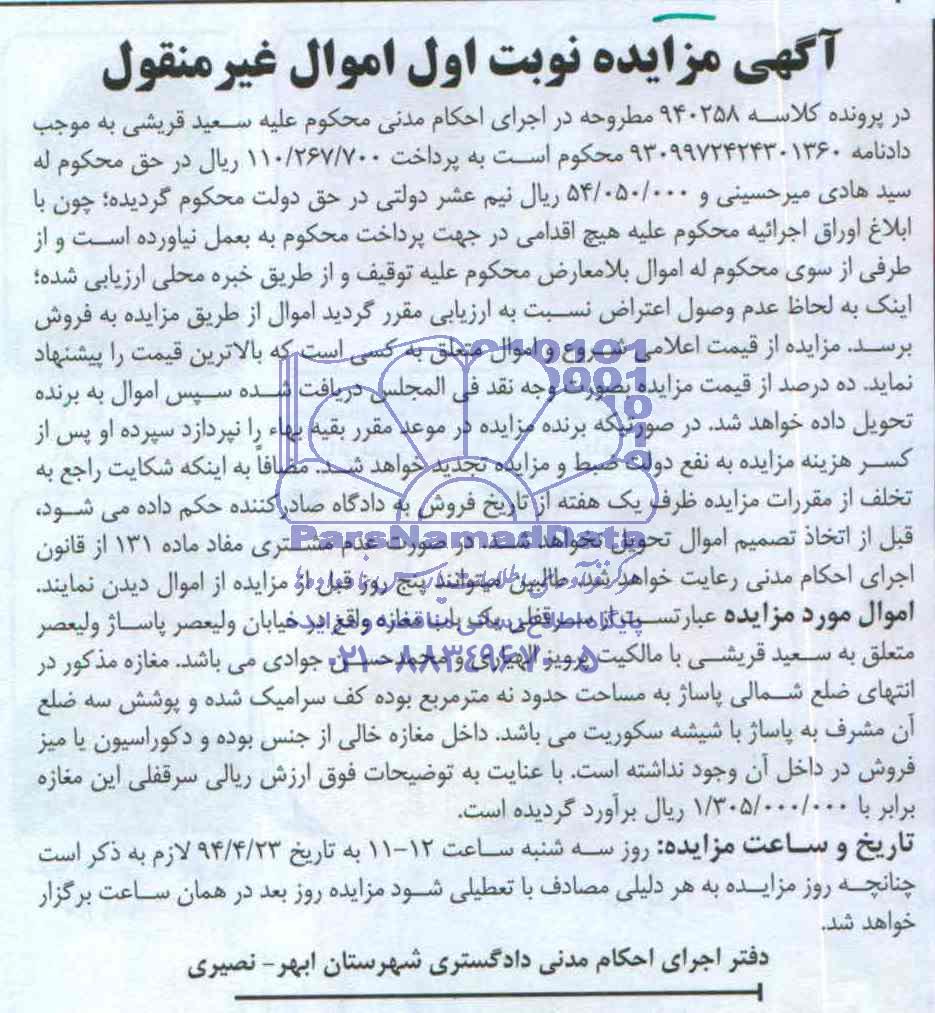 آگهی مزایده نوبت اول اموال غیر منقول
در پرونده کلاسه ۹۴۰۲۵۸ مطروحه در اجرای احکام مدنی محکوم علیه سعید قریشی به موجب
دادنامه ۹۳۰۹۹۷۲۴۲۴۳۰۱۳۶۰ محکوم است به پرداخت ۱۱۰/۲۶۷/۷۰۰ ریال در حق محکوم له
سید هادی میرحسینی و ۵۴/۰۵۰/۰۰۰ ریال نیم عشر دولتی در حق دولت محکوم گردیده؛ چون با
ابلاغ اوراق اجرائیه محکوم علیه هیچ اقدامی در جهت پرداخت محکوم به بعمل نیاورده است و از
طرفی از سوی محکوم له اموال بلامعارض محکوم علیه توقیف و از طریق خبره محلی ارزیابی شده؛
اینک به لحاظ عدم وصول اعتراض نسبت به ارزیابی مقرر گردید اموال از طریق مزایده به فروش
برسد. مزایده از قیمت اعلامی شروع و اموال متعلق به کسی است که بالاترین قیمت را پیشنهاد
نماید. ده درصد از قیمت مزایده بصورت وجه نقد فی المجلس دریافت شده سپس اموال به برنده
تحویل داده خواهد شد. در صورتیکه برنده مزایده در موعد مقرر بقیه بهاء را نپردازد سپرده او پس از
کسر هزینه مزایده به نفع دولت ضبط و مزایده تجدید خواهد شد. مضافاً به اینکه شکایت راجع به
تخلف از مقررات مزایده ظرف یک هفته از تاریخ فروش به دادگاه صادرکننده حکم داده می شود،
قبل از اتخاذ تصمیم اموال تحویل نخواهد شد. در صورت عدم مشتری مفاد ماده ۱۳۱ از قانون
ParsNamadData
اجرای احکام مدنی رعایت خواهد شد. طالبین میتوانند پنج روز قبل از مزایده از اموال دیدن نمایند.
اموال مورد مزایده عبارتست از سرقفلی یک باب مغازه واقع در خیابان ولیعصر پاساژ ولیعصر
پایگاه اطلاع رسانی مناقصه و مزایده
متعلق به سعید قریشی با مالکیت پرویز الهیاری و محمدحسن جوادی می باشد. مغازه مذکور در
۰۲۱-۸۸۳۴۹۶۷۰-۵
انتهای ضلع شمالی پاساژ به مساحت حدود نه مترمربع بوده کف سرامیک شده و پوشش سه ضلع
آن مشرف به پاساژ با شیشه سکوریت می باشد. داخل مغازه خالی از جنس بوده و دکوراسیون یا میز
فروش در داخل آن وجود نداشته است. با عنایت به توضیحات فوق ارزش ریالی سرقفلی این مغازه
برابر با ۱/۳۰۵/۰۰۰/۰۰۰ ریال برآورد گردیده است.
تاریخ و ساعت مزایده: روز سه شنبه ساعت ۱۲-۱۱ به تاریخ ۹۴/۴/۲۳ لازم به ذکر است
چنانچه روز مزایده به هر دلیلی مصادف با تعطیلی شود مزایده روز بعد در همان ساعت برگزار
خواهد شد.
دفتر اجرای احکام مدنی دادگستری شهرستان ابهر- نصیری